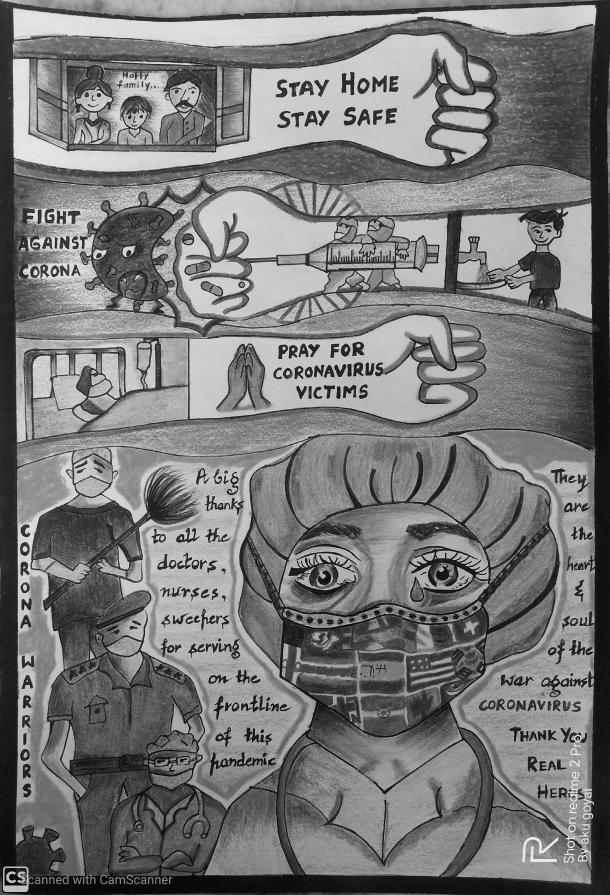 Happy
family...
STAY HOME
STAY SAFE
FIGHT
AGAINST
CORONA
PRAY FOR
CORONAVIRUS
VICTIMS
CORONA WARRIORS
A big
thanks
to all the
doctors,
nurses,
sweepers
for serving
on the
frontline
of this
pandemic
They
are
the
heart
&
soul
of the
war against
CORONAVIRUS
THANK YOU
REAL
HEROS
Shot on realme 2 Pro
By aku goyal
CS
Scanned with CamScanner